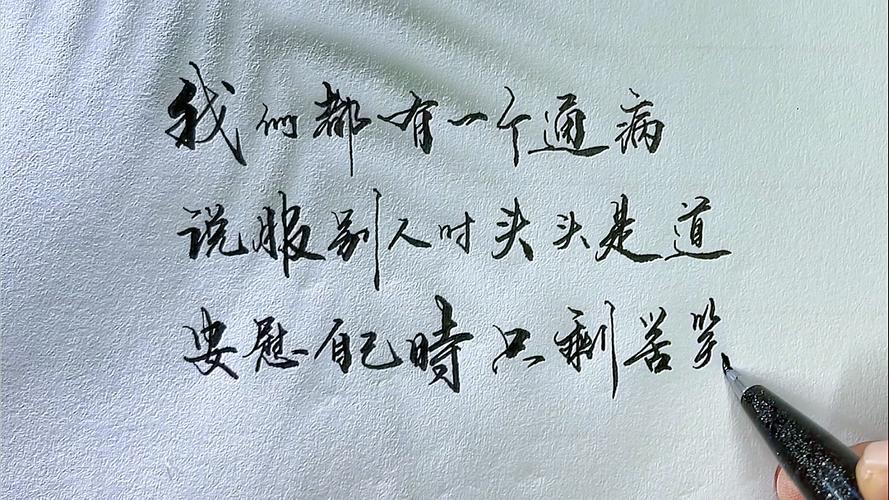 我们都有一个通病
说服别人时头头是道
安慰自己時只剩苦笑